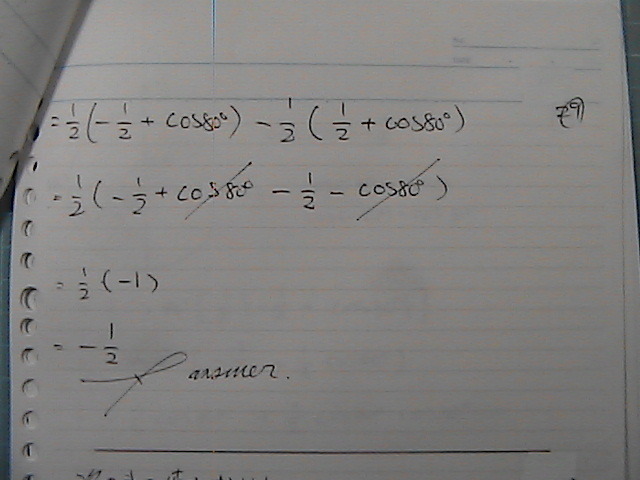 = 1/2 (- 1/2 + cos80°) - 1/2 ( 1/2 + cos80°)
= 1/2 (- 1/2 + cos80° - 1/2 - cos80°)
= 1/2 (-1)
= - 1/2
answer.